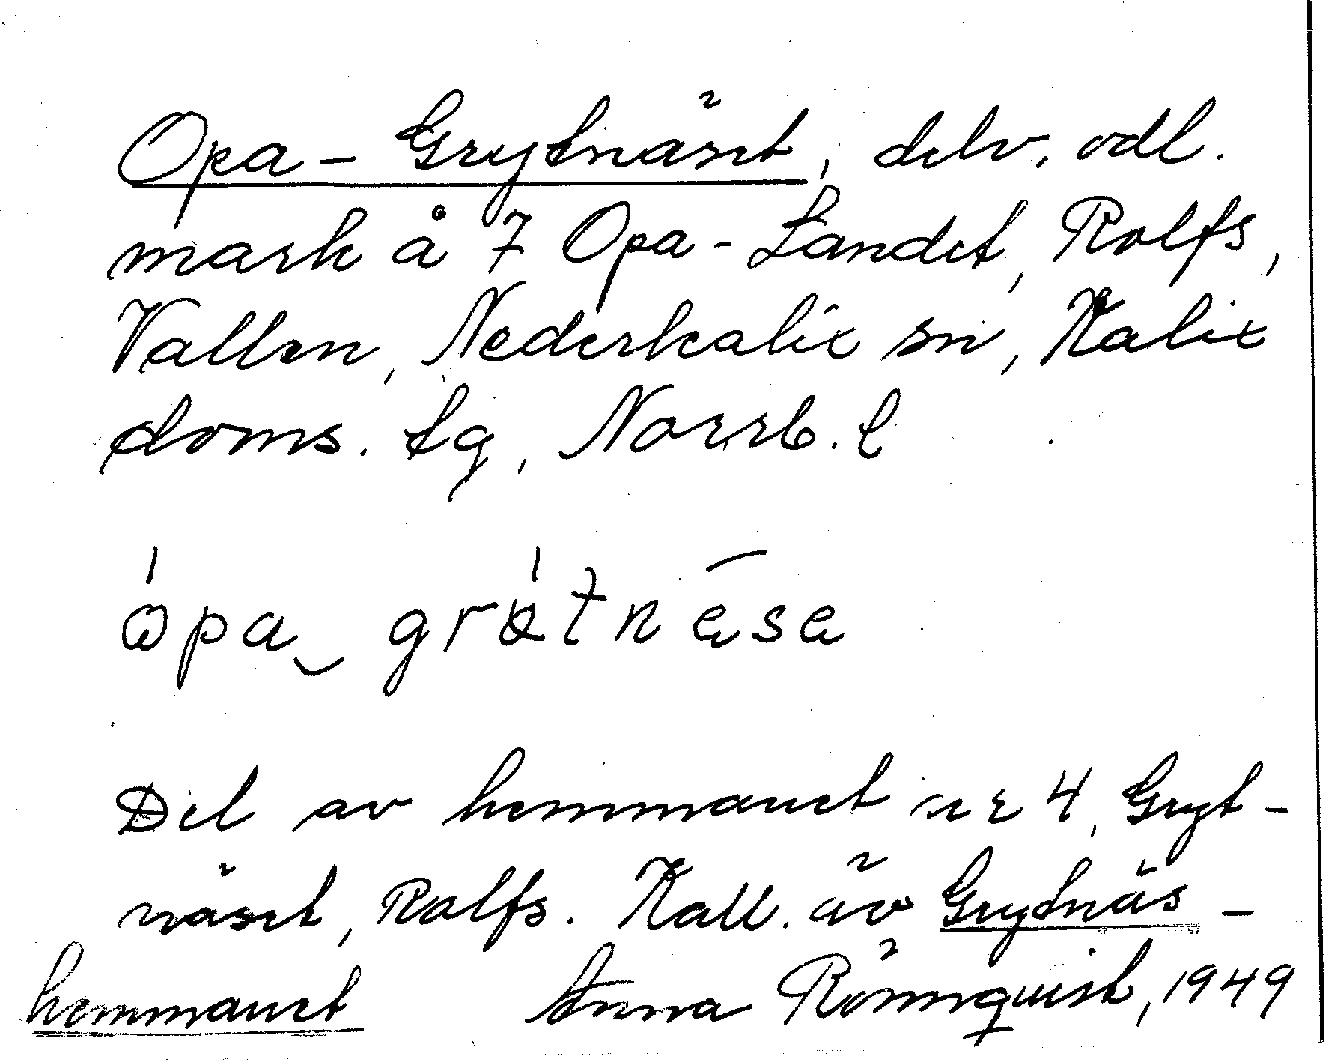 Opa-Grytnäset, delv. odl.
mark å 7 Opa-Landet, Rolfs,
Vallen, Nederkalix sn, Kalix
doms. tg, Norrb. l
Del av hemmanet nr 4, Gryt-
näset, Rolfs. Kall. äv Grytnäs-
hemmanet Anna Rönnquist, 1949